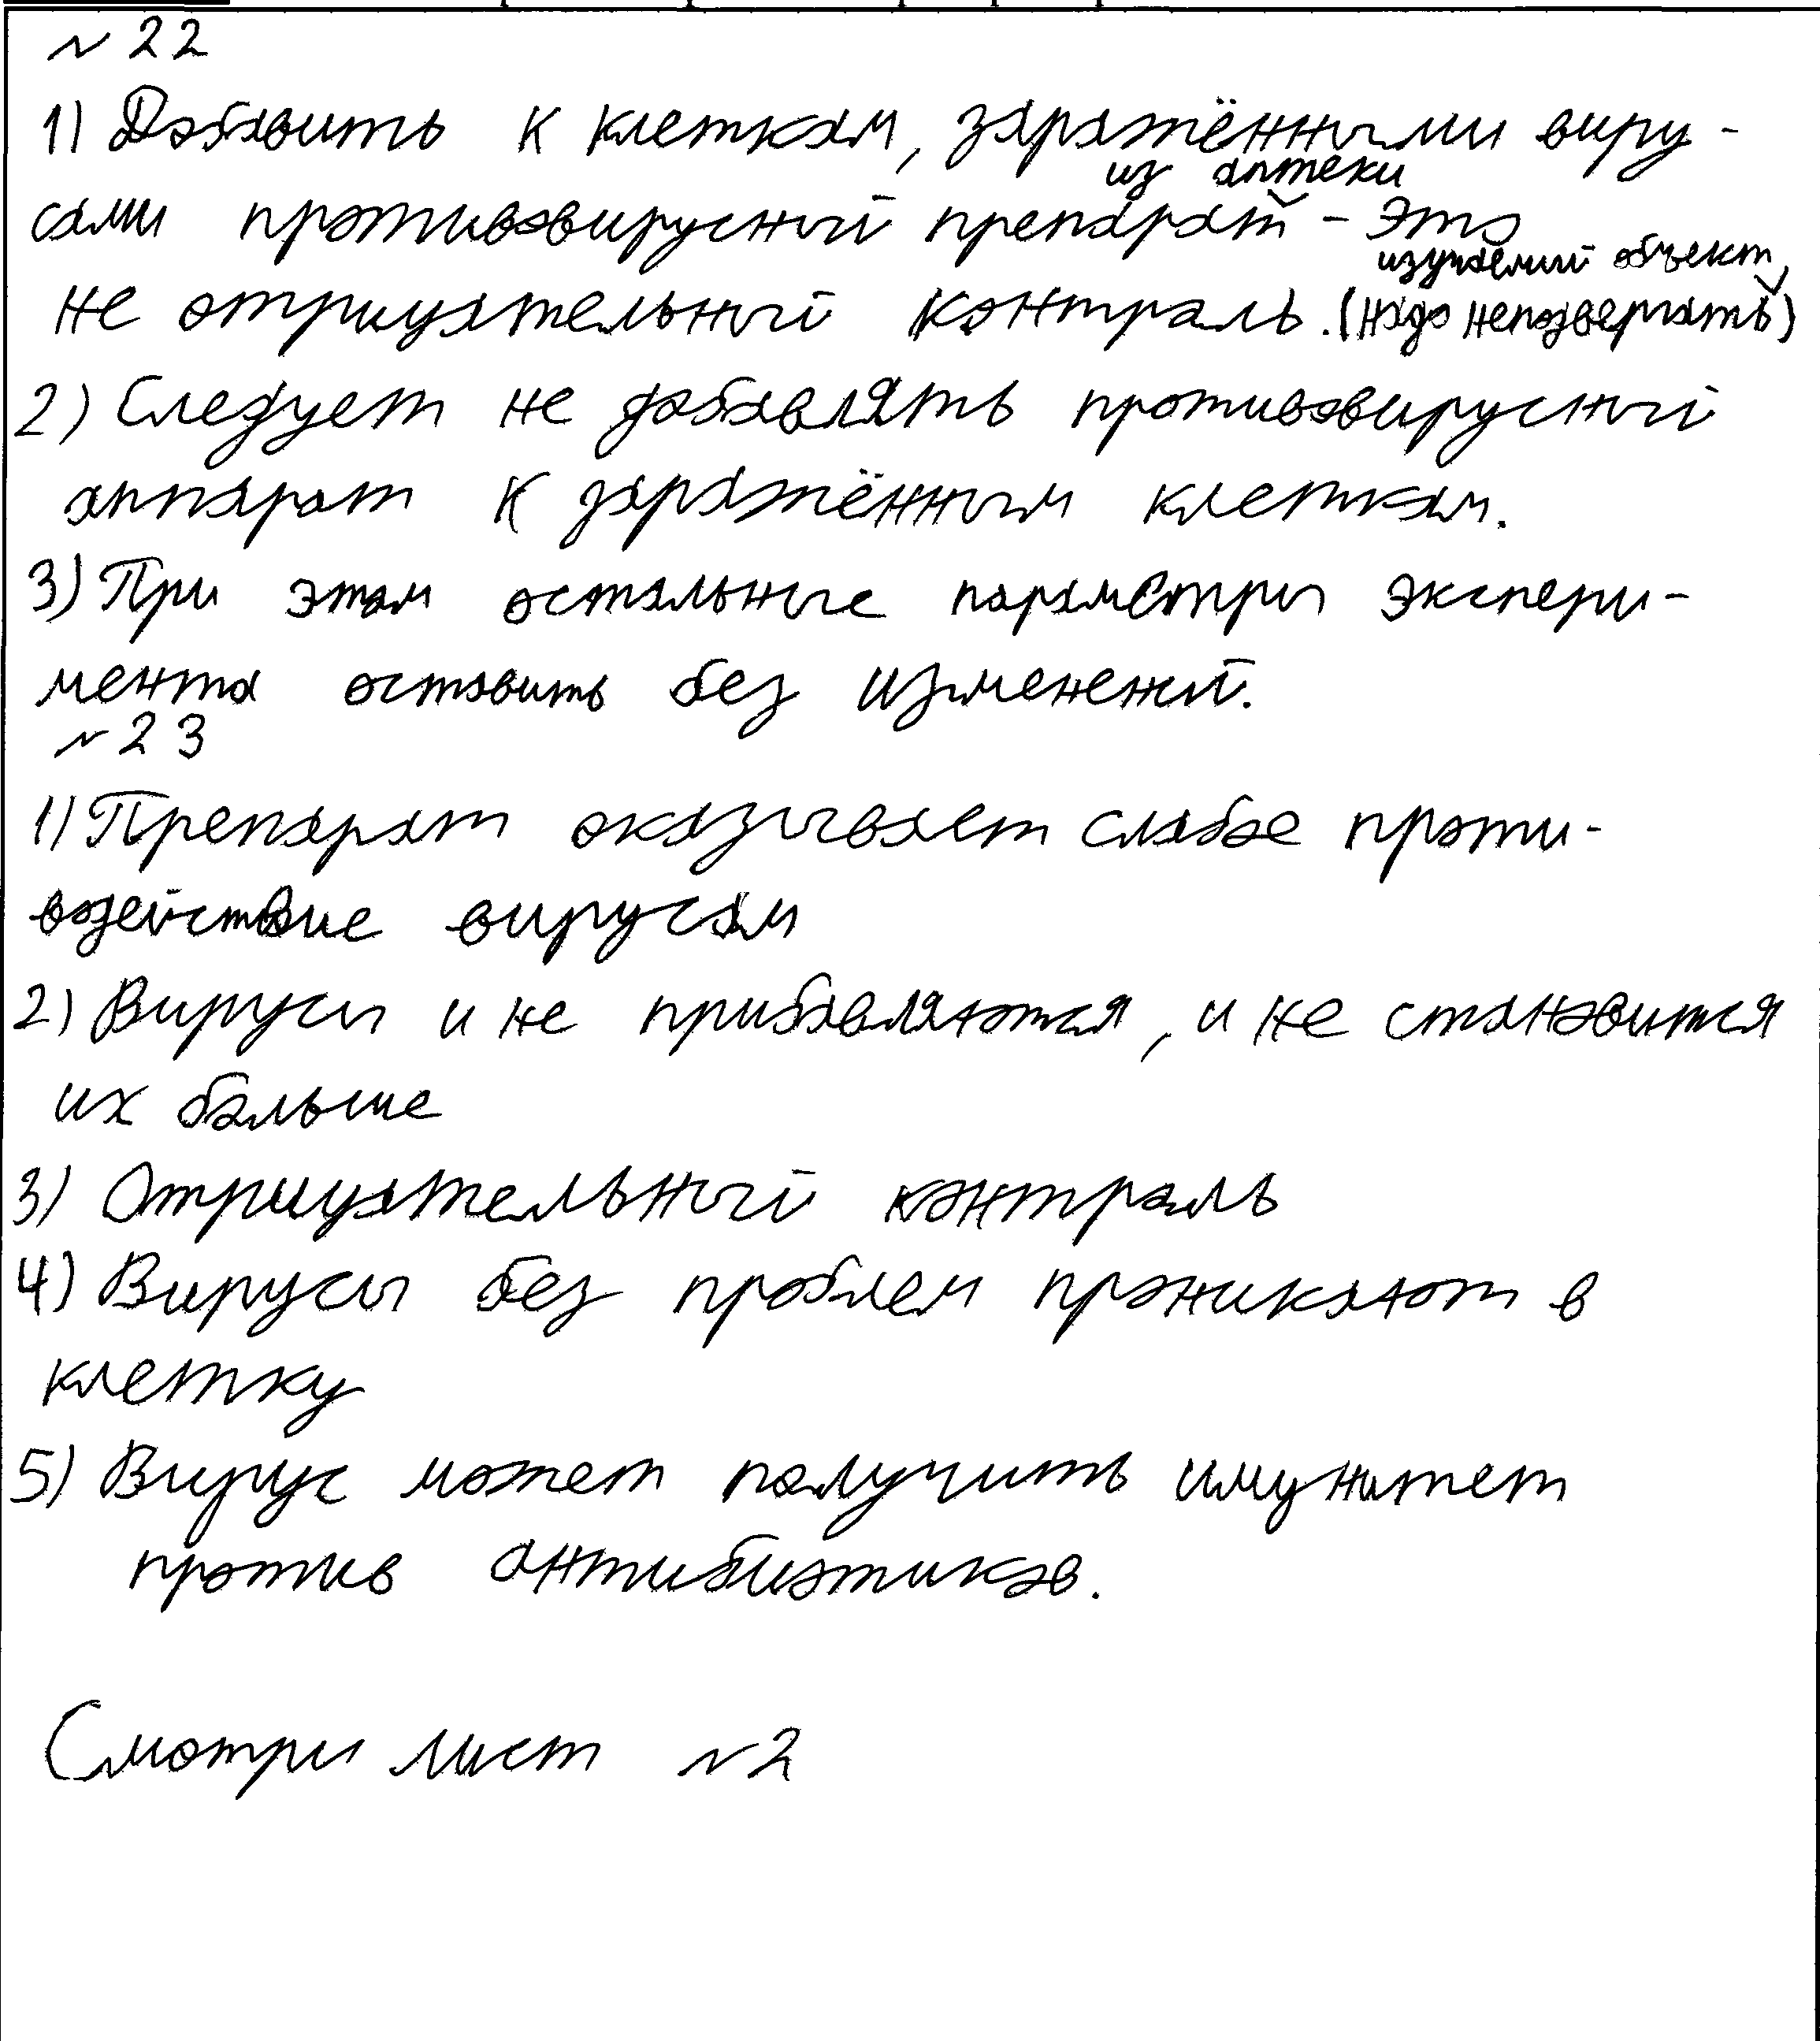 № 22
1) Добавить к клеткам, заражёнными виру-
из аптеки
сами противовирусный препарат - это
изучаемый объект
не отрицательный контроль. (надо неподвергать)
2) Следует не добавлять противовирусный
аппарат к заражённым клеткам.
3) При этом остальные параметры экспери-
мента оставить без изменений.
№ 23
1) Препарат оказывает слабое проти-
водействие вирусам
2) Вирусы и не прибавляются, и не становится
их больше
3) Отрицательный контроль
4) Вирусы без проблем проникают в
клетку
5) Вирус может получить имунитет
против антибиотиков.
Смотри лист №2